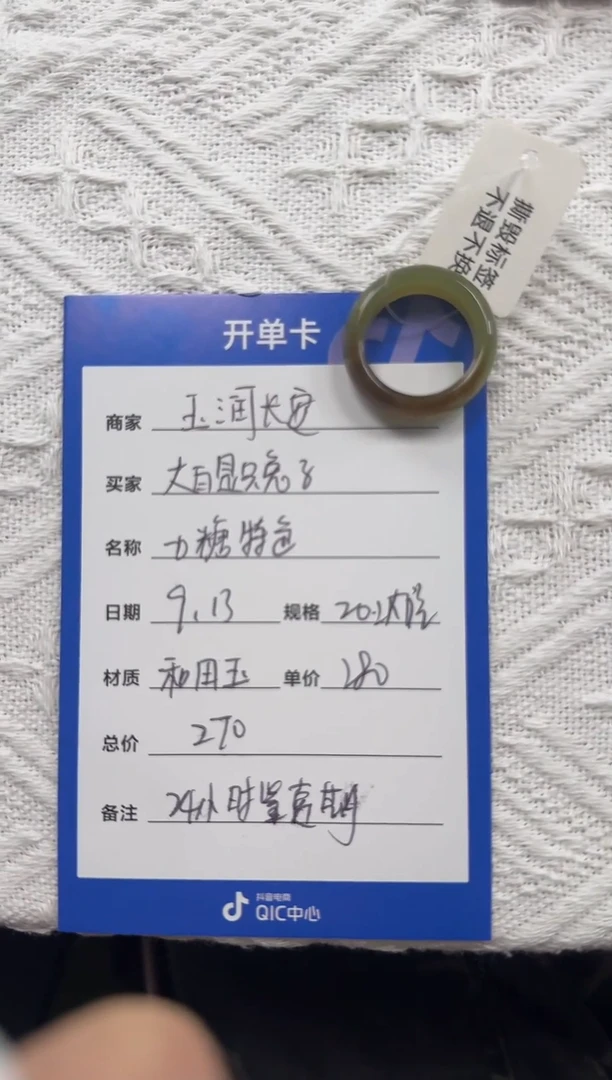 撕毁标签
不退不换
开单卡
商家 玉润长安
买家 大白显只兔子
名称 糖特色
日期 9.13 规格 20.2内径
材质 和田玉 单价 280
总价 270
备注 24小时鉴赏期
抖音电商
QIC中心